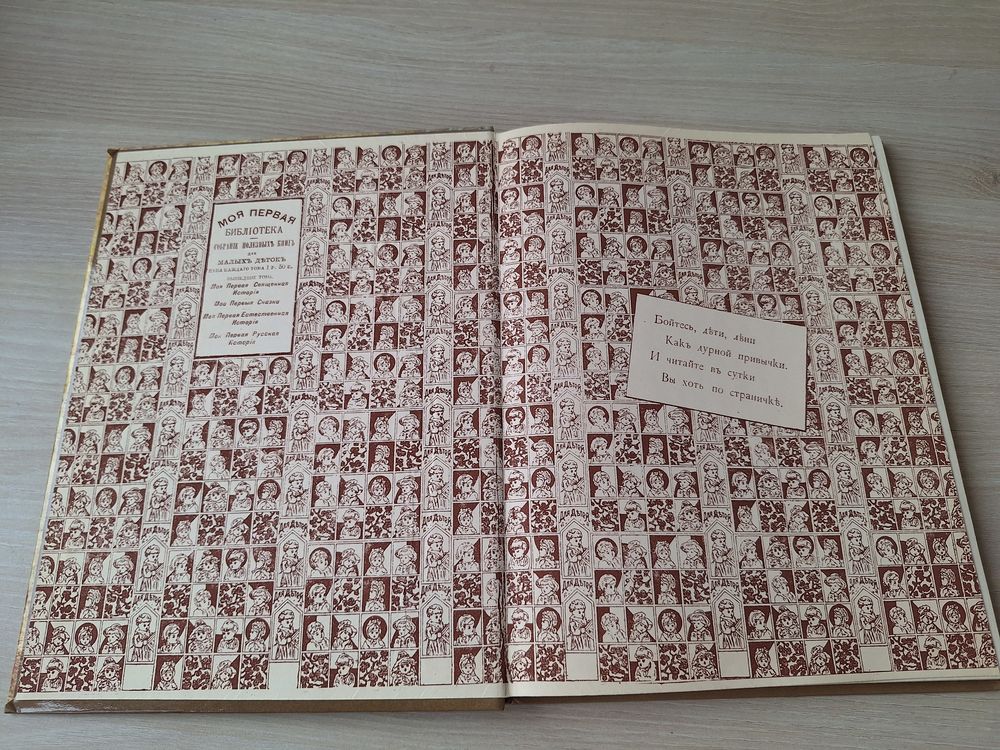 МОЯ ПЕРВАЯ
БИБЛІОТЕКА
СОБРАНІЕ ПОЛЕЗНЫХЪ КНИГЪ
для
МАЛЫХЪ ДѢТОКЪ
ЦѢНА КАЖДАГО ТОМА 1 Р. 50 К.
ВЫШЕДШІЕ ТОМА:
Моя Первая Священная
Исторія
Мои Первыя Сказки
Моя Первая Естественная
Исторія
Моя Первая Русская
Исторія
Бойтесь, дѣти, лѣни
Какъ дурной привычки.
И читайте въ сутки
Вы хоть по страничкѣ.
ДЛЯ ДѢТОКЪ